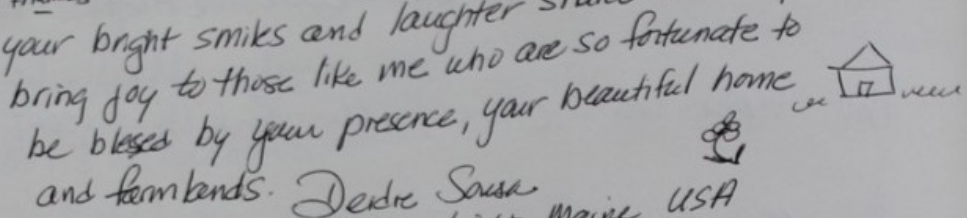 your bright smiles and laughter
bring joy to those like me who are so fortunate to
be blessed by your presence, your beautiful home
and farmlands. Deidre Sousa
Maine USA